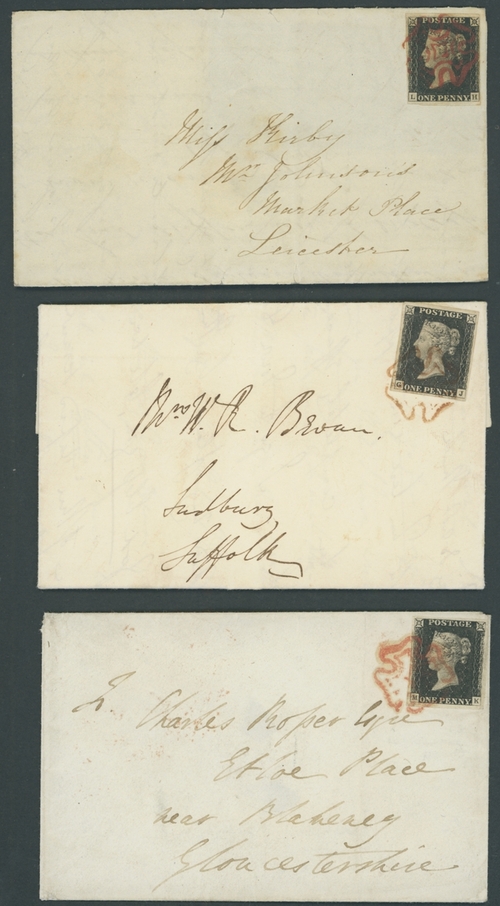 POSTAGE
L H
ONE PENNY
Miss Kirby
Mr Johnson's
Market Place
Leicester
POSTAGE
G J
ONE PENNY
Mrs W. R. Bevan.
Sudbury
Suffolk
POSTAGE
M K
ONE PENNY
Charles Roper Esqre
Etloe Place
near Blakeney
Gloucestershire